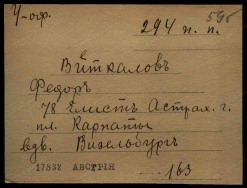 У-оф.
294 п. п.
Виткаловъ
Федоръ
78 Елистъ Астрах. г.
пл. Карпаты
вдв. Визельбургъ
17832 АВСТРІЯ
163